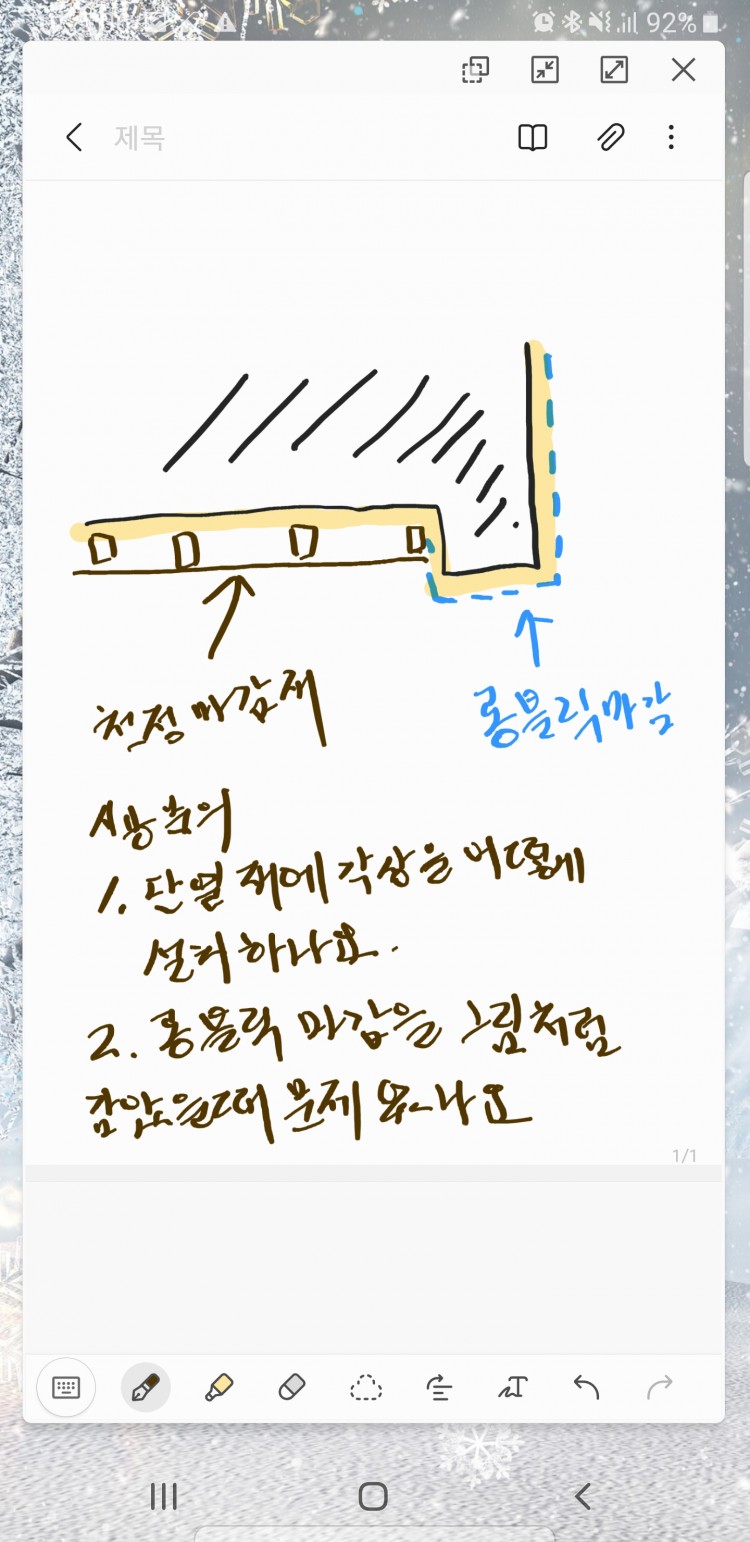 92%
제목
천정마감재
롱블럭마감
시공문의
1. 단열재에 각상을 어떻게
설치하나요.
2. 롱블럭 마감을 그림처럼
문제 없나요
1/1